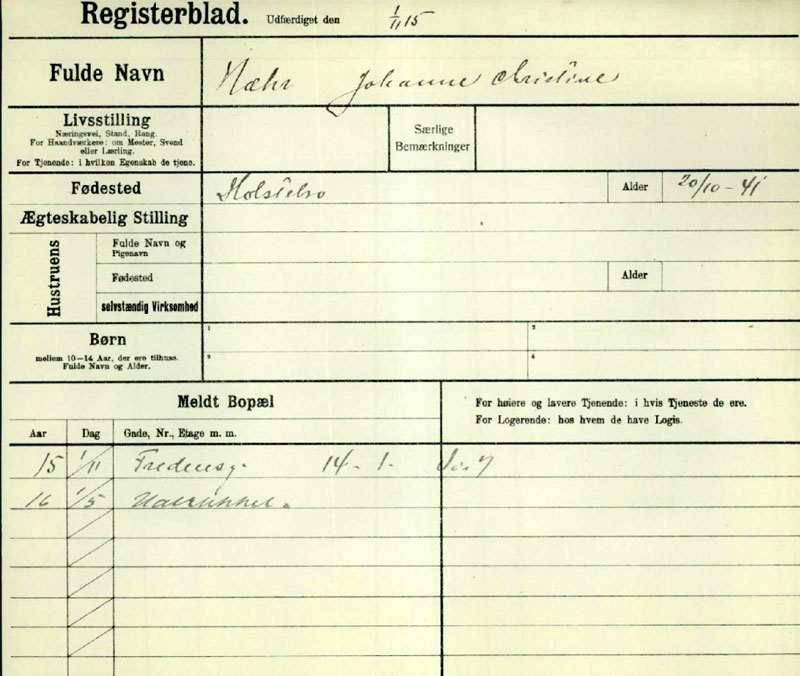 Registerblad. Udfærdiget den 1/11 15
Fulde Navn
Johanne Christine
Livsstilling
Næringsvei, Stand, Rang.
For Haandværkere: om Mester, Svend
eller Lærling.
For Tjenende: i hvilken Egenskab de tjene.
Særlige
Bemærkninger
Fødested Holstebro Alder 20/10 - 41
Ægteskabelig Stilling
Hustruens
Fulde Navn og
Pigenavn
Fødested Alder
selvstændig Virksomhed
Børn
mellem 10—14 Aar, der ere tilhuse.
Fulde Navn og Alder.
1 2
3 4
Meldt Bopæl
For høiere og lavere Tjenende: i hvis Tjeneste de ere.
For Logerende: hos hvem de have Logis.
Aar Dag Gade, Nr., Etage m. m.
15 1/11 Fredensg. 14 - 1 -
16 1/5